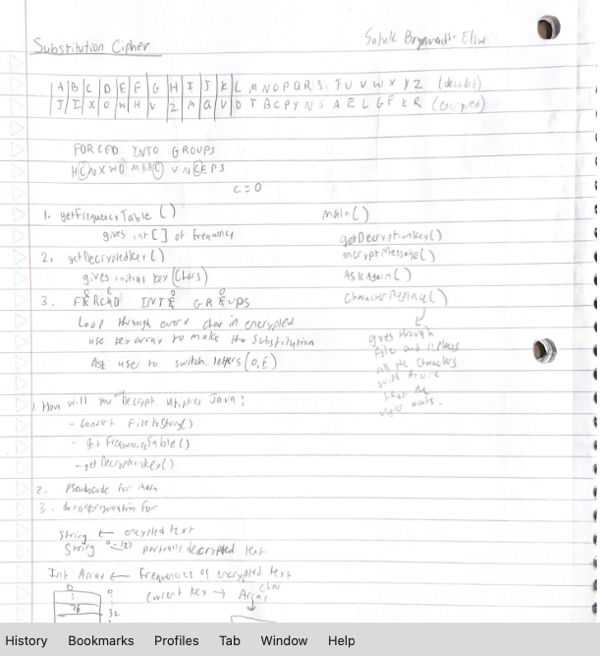 Substitution Cipher
A B C D E F G H I J K L M N O P Q R S T U V W X Y Z (decoded)
J I X O W H V Z M Q U D T B C P Y N S A E L G F K R (encrypted)
FORCED INTO GROUPS
HCNXWO MBAC VNCEPS
C=O
1. getFrequencyTable()
gives int[] of frequency
2. getDecryptedKey()
gives initial key (Chars)
3. INTE
Loop through every char in encrypted
use key array to make the substitution
Ask user to switch letters (O,E)
main()
getDecryptionKey()
encryptMessage()
AskAgain()
CharacterReplace()
goes through
File and replaces
all the characters
with
that the
user wants.
1. How will you Decrypt Java?
- Convert File to String()
- get Frequencies Table()
- get DecryptionKey()
2. Pseudocode for main
3. for
String ← encrypted text
String partially decrypted text
Int Array ← Frequencies of encrypted text
Current Key → Array
0
History Bookmarks Profiles Tab Window Help